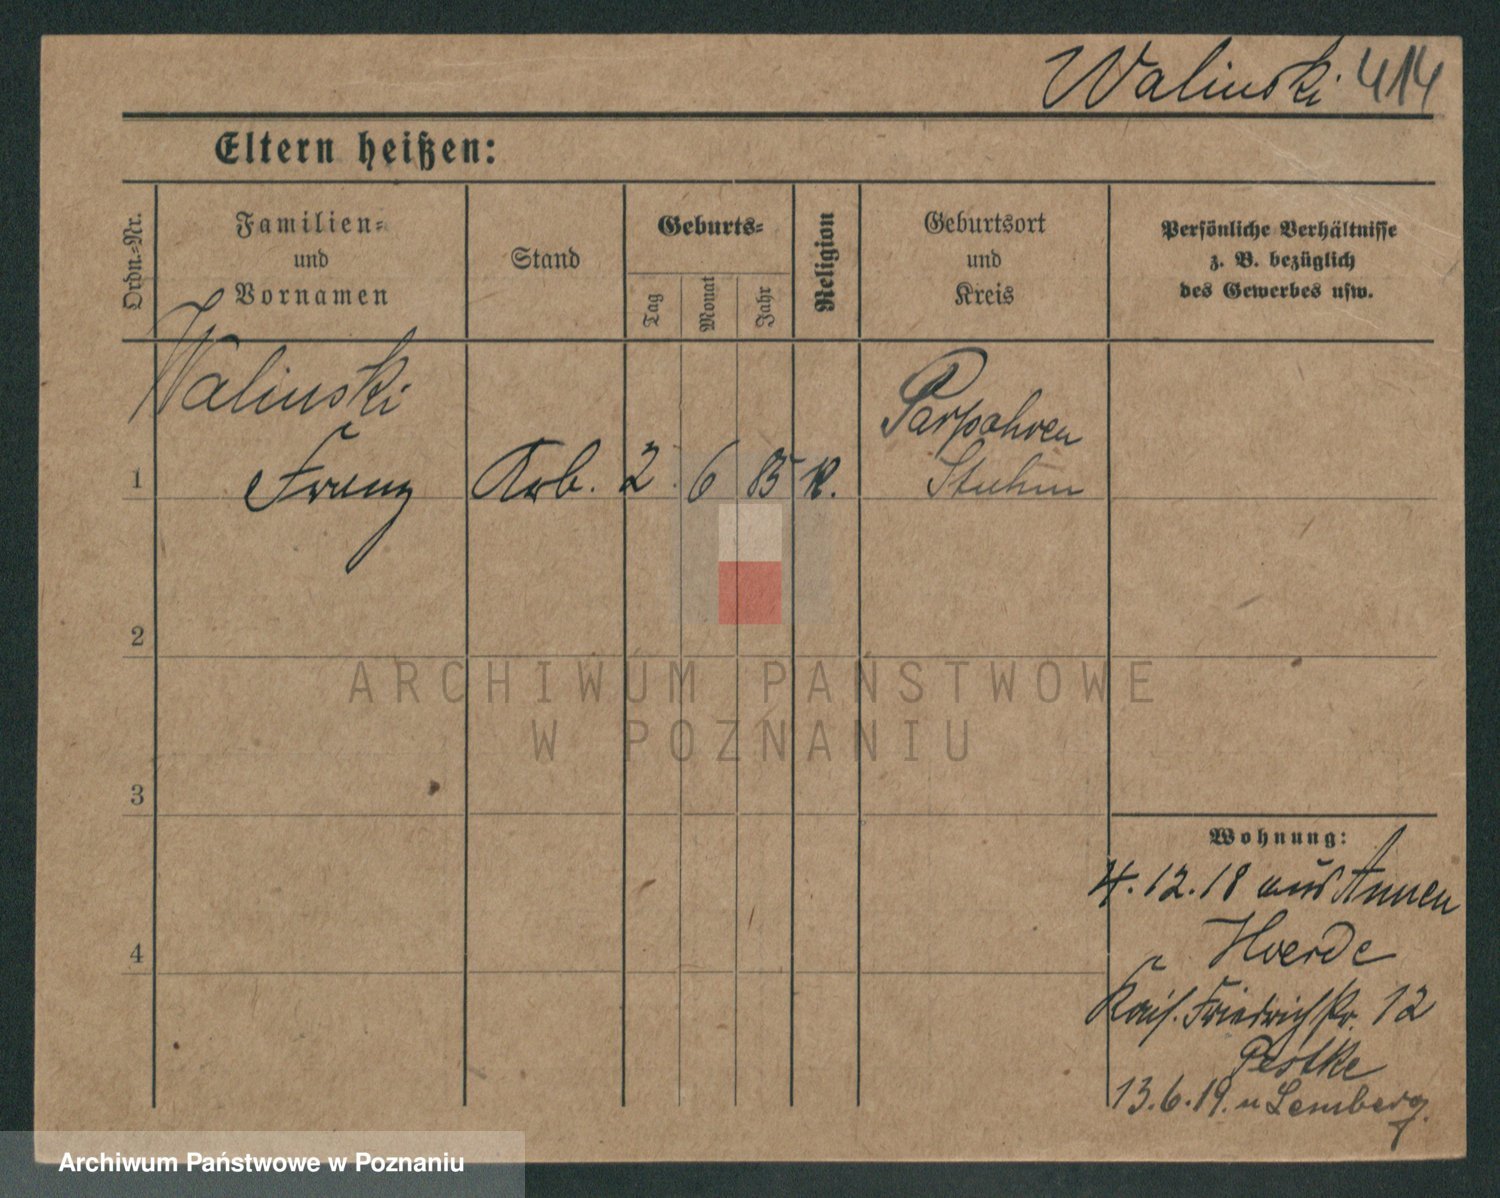 Walinski 414
Eltern heißen:
Ordn.-Nr.
Familien-
und
Vornamen
Stand
Geburts-
Tag
Monat
Jahr
Religion
Geburtsort
und
Kreis
Persönliche Verhältnisse
z. B. bezüglich
des Gewerbes usw.
Walinski
Parpahren
1 Franz Arb. 2 6 85 K. Stuhm
2
3
4
Wohnung:
4.12.18 aus Annen
Hoerde
Kais. Friedrichstr. 12
Pestke
13.6.19. n Lemberg.
ARCHIWUM PAŃSTWOWE
W POZNANIU
Archiwum Państwowe w Poznaniu